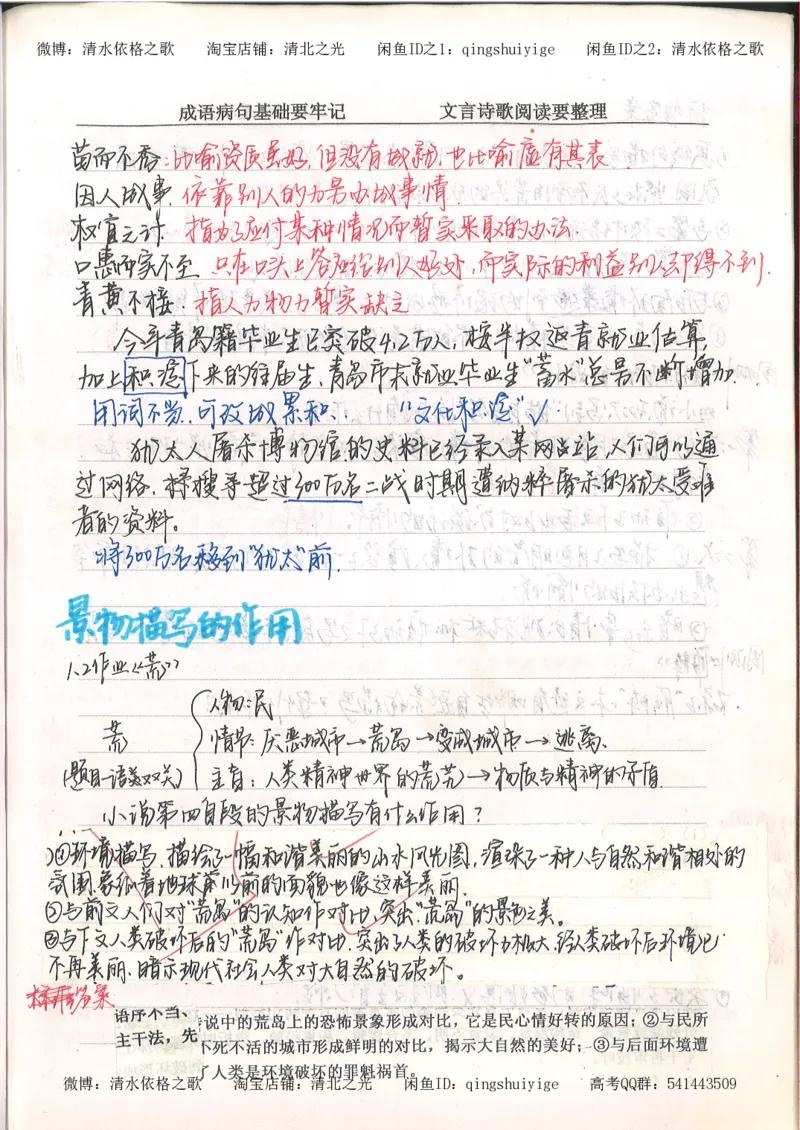 微博：清水依格之歌 淘宝店铺：清北之光 闲鱼ID之1：qingshuiyige 闲鱼ID之2：清水依格之歌
成语病句基础要牢记 文言诗歌阅读要整理
苗而不秀：比喻资质虽好,但没有成就,也比喻虚有其表
因人成事.依靠别人的力量办成事情
权宜之计 指为了应付某种情况而暂实采取的办法.
口惠而实不至 只在口头上答应给别人好处,而实际的利益别人却得不到.
青黄不接：指人力物力暂实缺乏
今年青岛籍毕业生已突破4.2万人,按半数返青就业估算,
加上积淀下来的往届生,青岛市未就业毕业生“蓄水”总量不断增加.
用词不当,可改成累积. “文化积淀”√
犹太人屠杀博物馆的史料已经录入某网站,人们可以通
过网络,搜寻超过300万名二战时期遭纳粹屠杀的犹太受难
者的资料。
将300万名移到“犹太”前.
景物描写的作用
1.2作业《荒》
人物:民
荒 情节:厌恶城市→荒岛→变成城市→逃离.
(题目-语义双关) 主旨：人类精神世界的荒芜→物质与精神的矛盾.
小说第四自段的景物描写有什么作用？
①环境描写,描绘了一幅和谐美丽的山水风光图,渲染了一种人与自然和谐相处的
氛围.象征着地球前以前的面貌也像这样美丽.
②与前文人们对“荒岛”的认知作对比,突出“荒岛”的景色之美。
③与下文人类破坏后的“荒岛”作对比,突出了人类的破坏力极大,经人类破坏后环境已
不再美丽.暗示现代社会人类对大自然的破坏。
标准答案
语序不当、 传说中的荒岛上的恐怖景象形成对比，它是民心情好转的原因；②与民所
主干法，先 不死不活的城市形成鲜明的对比，揭示大自然的美好；③与后面环境遭
了人类是环境破坏的罪魁祸首。
微博：清水依格之歌 淘宝店铺：清北之光 闲鱼ID：qingshuiyige 高考QQ群：541443509